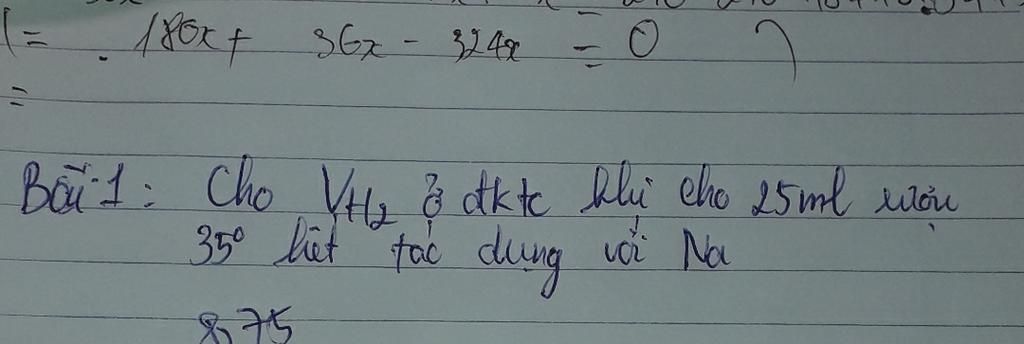 = 180x + 36x - 324x = 0
=
Bài 1: Cho VH2 ở đktc khi cho 25ml rượu
35° hết tác dụng với Na
8,75